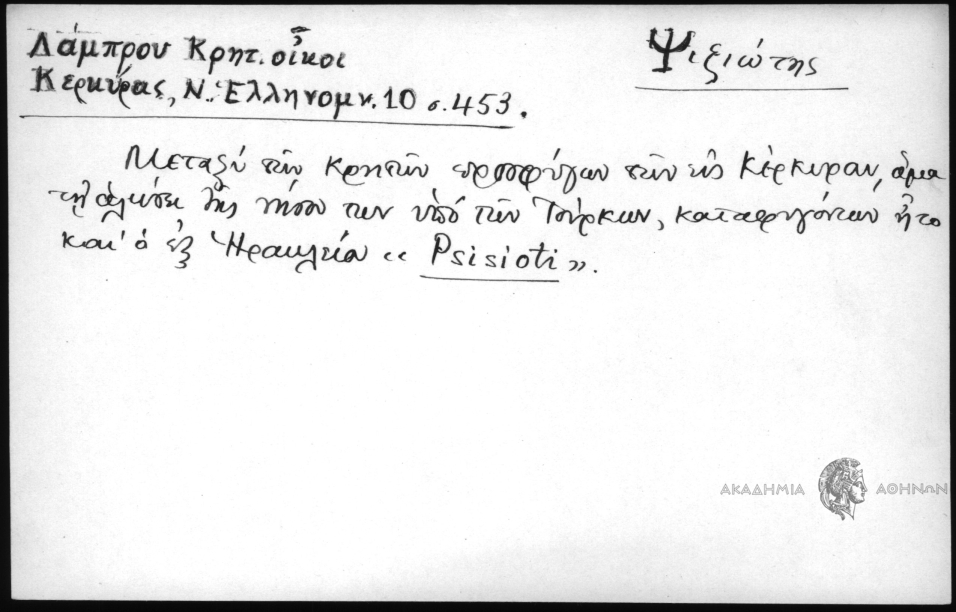 Λάμπρου Κρητ. οἶκοι
Κερκύρας, Ν. Ἑλληνομν. 10 σ. 453.
Ψιξιώτης
Μεταξύ τῶν Κρητῶν προσφύγων τῶν εἰς Κέρκυραν, ἅμα
τῇ ἁλώσει τῆς νήσου των ὑπό τῶν Τούρκων, καταφυγόντων ἦτο
και' ὁ ἐξ Ἡρακλείου « Psisioti ».
ΑΚΑΔΗΜΙΑ ΑΘΗΝΩΝ